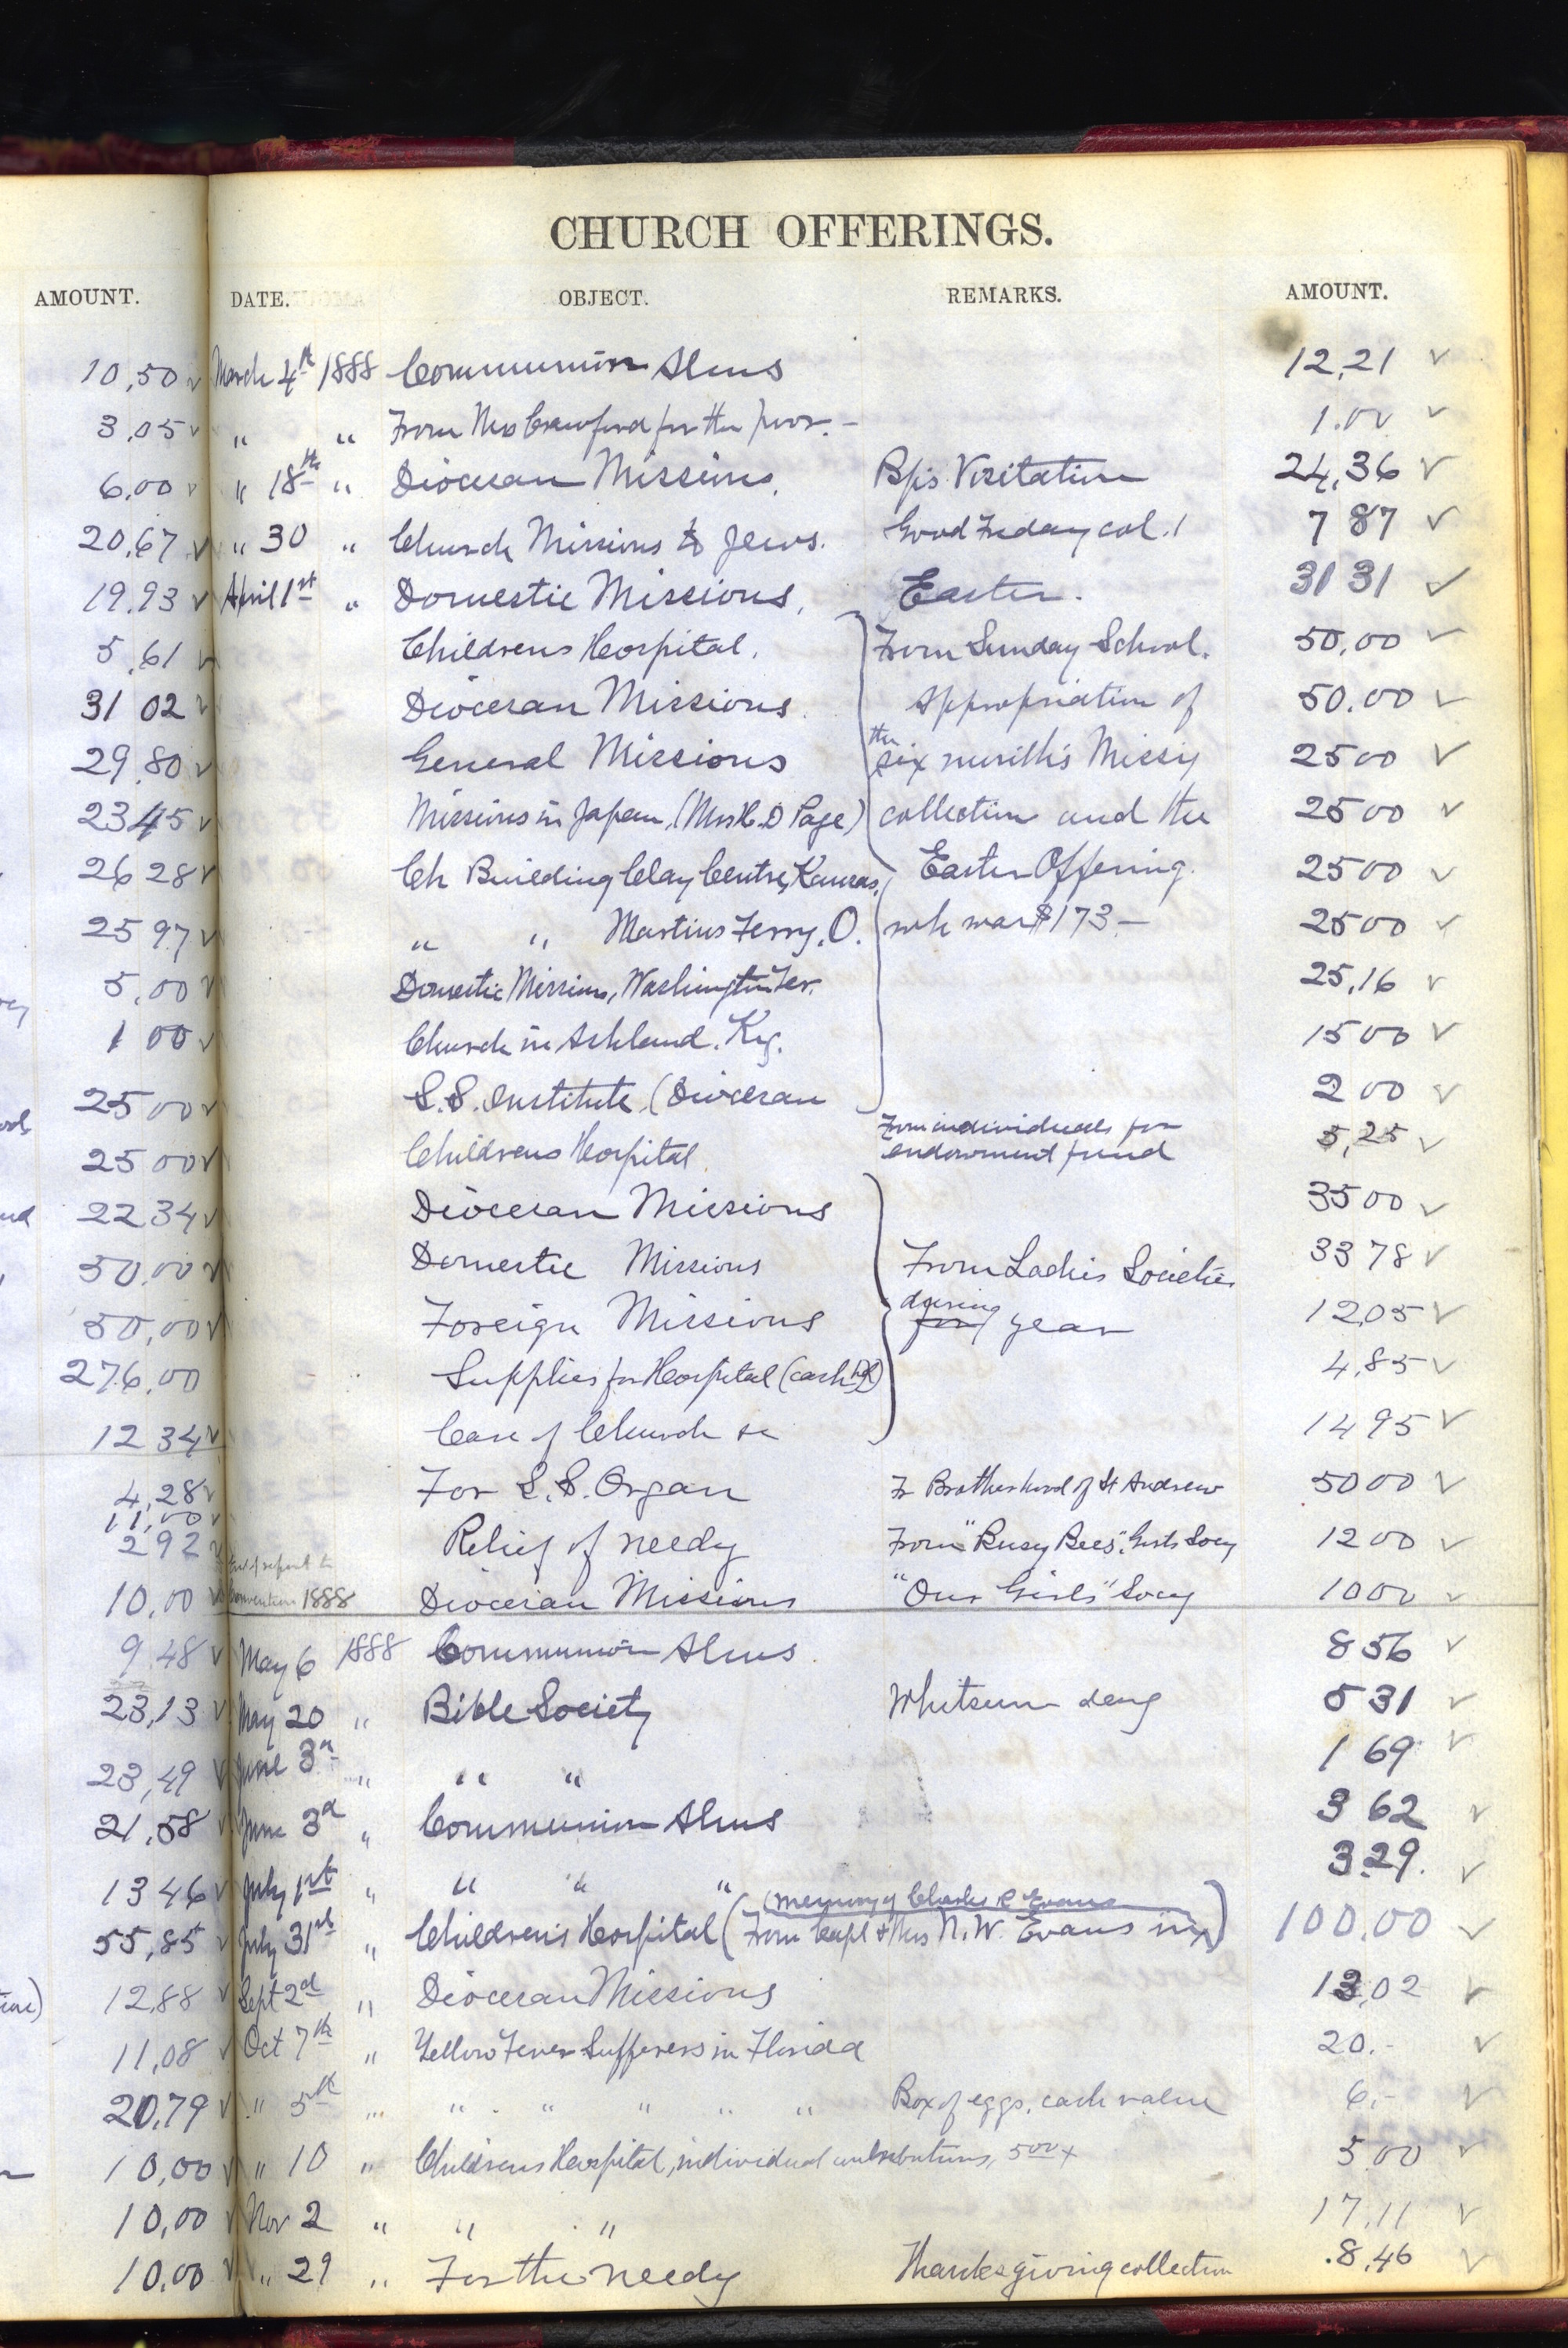 CHURCH OFFERINGS.
AMOUNT. DATE. OBJECT. REMARKS. AMOUNT.
10,50 March 4th 1888 Communion Alms 12,21
3,05 " " From Mrs Crawford for the poor. - 1.00
6,00 " 18th " Diocesan Missions. Bps Visitation 24,36
20,67 " 30 " Church Missions to Jews. Good Friday col. 7 87
19,93 April 1st " Domestic Missions, Easter. 31 31
5,61 Childrens Hospital. From Sunday School. 50,00
31 02 Diocesan Missions. Appropriation of 50.00
29,80 General Missions the six month's Missy 25 00
23 45 Missions in Japan, (Mrs H. D Page) collection and the 25 00
26 28 Ch Building Clay Centre, Kansas, Easter Offering. 25 00
25 97 " " Martins Ferry, O. wh was $173 - 25 00
5,00 Domestic Missions, Washington Ter. 25,16
1 00 Church in Ashland. Ky. 15 00
25 00 S. S. Institute, (Diocesan 2 00
25 00 Childrens Hospital From individuals for endowment fund 5,25
22 34 Diocesan Missions 35 00
50.00 Domestic Missions From Ladies Societies 33 78
50,00 Foreign Missions for during year 12,05
276,00 Supplies for Hospital (cash 4,85
12 34 Care of Church &c 14 95
4,28 For S. S. Organ Fr Brotherhood of St Andrew 50 00
11,00
2 92 Relief of needy From "Busy Bees", Girls Socy 12 00
End of report to
10,00 Convention 1888 Diocesan Missions "Our Girls" Socy 10 00
9 48 May 6 1888 Communion Alms. 8 56
23,13 May 20 " Bible Society Whitsun day 5 31
23,49 June 3d " " " 1 69
21,58 June 3d " Communion Alms 3 62
13 46 July 1st " " " " 3 29.
(memory of Charles R Evans
55,85 July 31st " Children's Hospital (From Capt & Mrs N. W. Evans in 100,00
12,88 Sept 2d " Diocesan Missions 13,02
11,08 Oct 7th " Yellow Fever Sufferers in Florida 20.-
20,79 " 5th " " " " " " Box of eggs, cash value 6,-
10,00 " 10 " Childrens Hospital, individual contributions, 5 00 5 00
10,00 Nov 2 " " " 17,11
10,00 " 29 " For the needy Thanksgiving collection 8,46